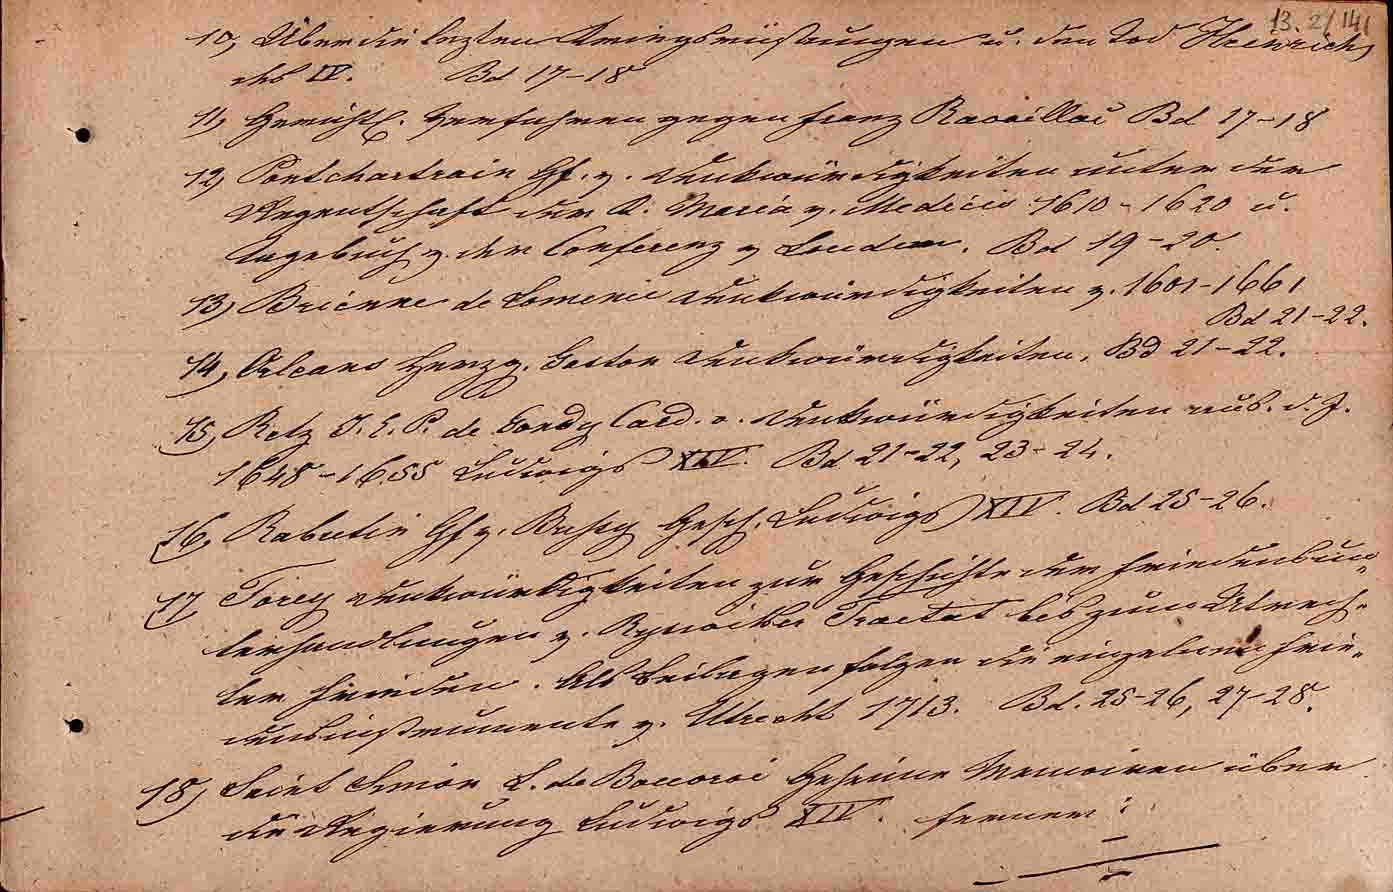 13.2/141
10, Über die lezten Kriegsrüstungen u. den Tod Heinrichs
des IV. Bd 17-18
11, Gerichtl. Verfahren gegen Franz Ravaillac Bd 17-18
12, Pontchartrain Gf. v. Denkwürdigkeiten unter der
Regentschaft der K. Maria v. Medicis 1610-1620 u.
Tagebuch v. der Conferenz v Loudun. Bd 19-20.
13, Brienne de Lomenie Denkwürdigkeiten v. 1601-1661
Bd 21-22.
14, Orleans Herzg. Gaston Denkwürdigkeiten. Bd 21-22.
15, Retz J. F. P. de Gondy Card. v. Denkwürdigkeiten aus. d. J.
1648-1655 Ludwigs XIV. Bd 21-22, 23-24.
16, Rabutin Gf v. Bussy Gesch. Ludwigs XIV. Bd 25-26.
17, Torcy Denkwürdigkeiten zur Geschichte der Friedensun-
terhandlungen v. Ryswicker Tractat bis zum Utrech-
ter Frieden. Als Beilagen folgen die einzelnen Frie-
densinstrumente v. Utrecht 1713. Bd. 25-26, 27-28.
18, Saint Simon L. de Bouvroi Geheime Memoiren über
die Regierung Ludwigs XIV. ferner: